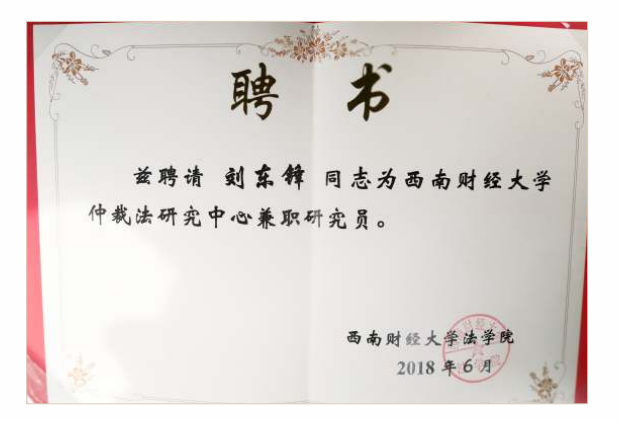 聘 书
兹聘请 刘东锋 同志为西南财经大学
仲裁法研究中心兼职研究员。
西南财经大学法学院
2018 年 6 月